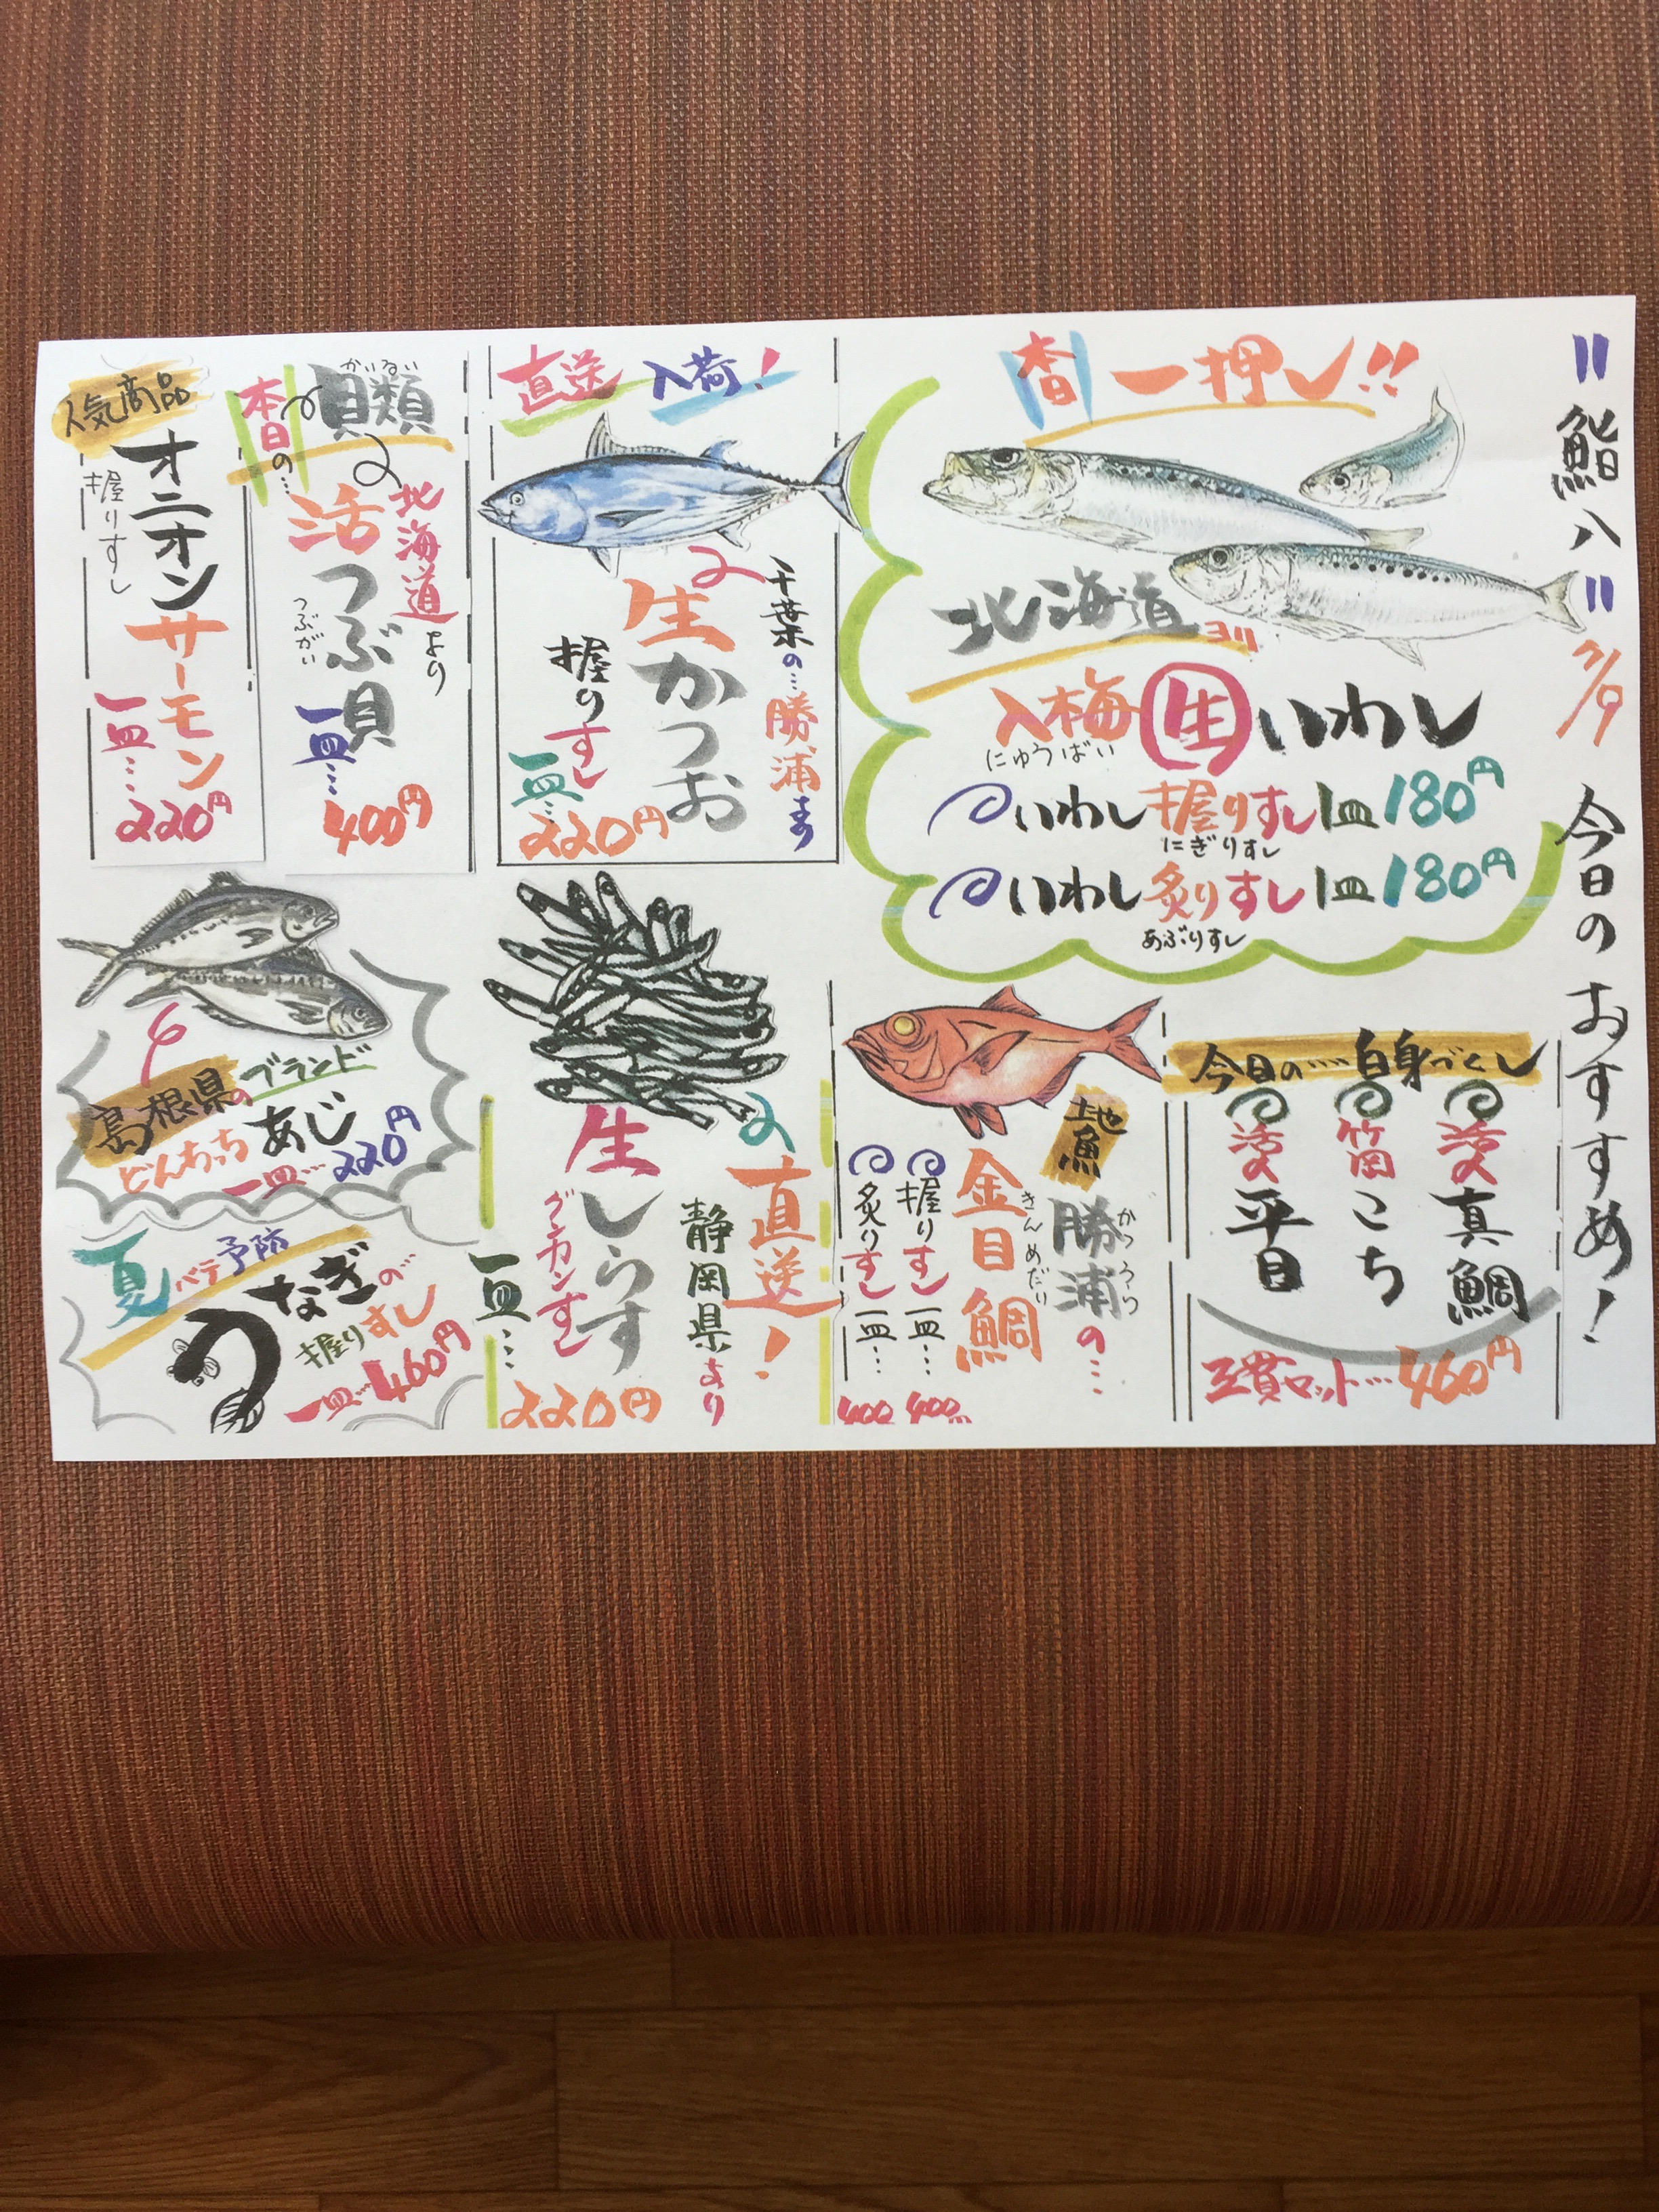 〃鮨八〃 7/9 今日のおすすめ!
本日一押し!!
北海道ヨリ
入梅生いわし
にゅうばい
いわし握りすし1皿180円
にぎりすし
いわし炙りすし1皿180円
あぶりすし
直送入荷!
千葉の…勝浦
生かつお
握りすし
一皿…220円
本日の…
貝類
かいるい
北海道より
活つぶ貝
つぶがい
一皿…400円
人気商品
オニオンサーモン
握りすし
一皿…220円
今日の……白身づくし
真鯛
こち
平目
三貫セット…460円
地魚
勝浦の…
かつうら
金目鯛
きんめだい
握りすし一皿…400
炙りすし一皿…400
直送!
静岡県より
生しらす
グンカンすし
一皿…220円
島根県のブランド
どんちっちあじ
一皿…220円
夏バテ予防
うなぎの
握りすし
一皿…460円